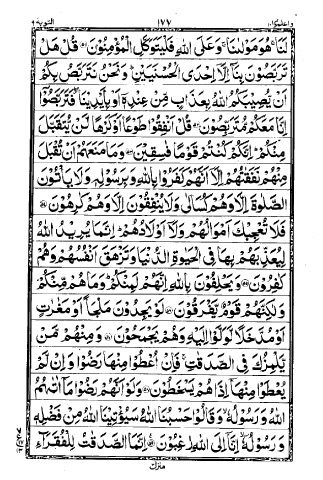 واعلموا ١٠ ١٧٧ التوبة ٩
لَنَا ۚ هُوَ مَوْلٰىنَا ۚ وَعَلَى اللّٰهِ فَلْيَتَوَكَّلِ الْمُؤْمِنُوْنَ ۝ قُلْ هَلْ
تَرَبَّصُوْنَ بِنَاۤ اِلَّاۤ اِحْدَى الْحُسْنَيَيْنِ ؕ وَنَحْنُ نَتَرَبَّصُ بِكُمْ
اَنْ يُّصِيْبَكُمُ اللّٰهُ بِعَذَابٍ مِّنْ عِنْدِهٖۤ اَوْ بِاَيْدِيْنَا ۖ فَتَرَبَّصُوْۤا
اِنَّا مَعَكُمْ مُّتَرَبِّصُوْنَ ۝ قُلْ اَنْفِقُوْا طَوْعًا اَوْ كَرْهًا لَّنْ يُّتَقَبَّلَ
مِنْكُمْ ؕ اِنَّكُمْ كُنْتُمْ قَوْمًا فٰسِقِيْنَ ۝ وَمَا مَنَعَهُمْ اَنْ تُقْبَلَ
مِنْهُمْ نَفَقٰتُهُمْ اِلَّاۤ اَنَّهُمْ كَفَرُوْا بِاللّٰهِ وَبِرَسُوْلِهٖ وَلَا يَاْتُوْنَ
الصَّلٰوةَ اِلَّا وَهُمْ كُسَالٰى وَلَا يُنْفِقُوْنَ اِلَّا وَهُمْ كٰرِهُوْنَ ۝
فَلَا تُعْجِبْكَ اَمْوَالُهُمْ وَلَاۤ اَوْلَادُهُمْ ؕ اِنَّمَا يُرِيْدُ اللّٰهُ
لِيُعَذِّبَهُمْ بِهَا فِي الْحَيٰوةِ الدُّنْيَا وَتَزْهَقَ اَنْفُسُهُمْ وَهُمْ
كٰفِرُوْنَ ۝ وَيَحْلِفُوْنَ بِاللّٰهِ اِنَّهُمْ لَمِنْكُمْ ؕ وَمَا هُمْ مِّنْكُمْ
وَلٰكِنَّهُمْ قَوْمٌ يَّفْرَقُوْنَ ۝ لَوْ يَجِدُوْنَ مَلْجَاً اَوْ مَغٰرٰتٍ
اَوْ مُدَّخَلًا لَّوَلَّوْا اِلَيْهِ وَهُمْ يَجْمَحُوْنَ ۝ وَمِنْهُمْ مَّنْ
يَّلْمِزُكَ فِي الصَّدَقٰتِ ۚ فَاِنْ اُعْطُوْا مِنْهَا رَضُوْا وَاِنْ لَّمْ
يُعْطَوْا مِنْهَاۤ اِذَا هُمْ يَسْخَطُوْنَ ۝ وَلَوْ اَنَّهُمْ رَضُوْا مَاۤ اٰتٰىهُمُ
اللّٰهُ وَرَسُوْلُهٗ ۙ وَقَالُوْا حَسْبُنَا اللّٰهُ سَيُؤْتِيْنَا اللّٰهُ مِنْ فَضْلِهٖ
وَرَسُوْلُهٗۤ ۙ اِنَّاۤ اِلَى اللّٰهِ رٰغِبُوْنَ ۝ اِنَّمَا الصَّدَقٰتُ لِلْفُقَرَآءِ
منزل